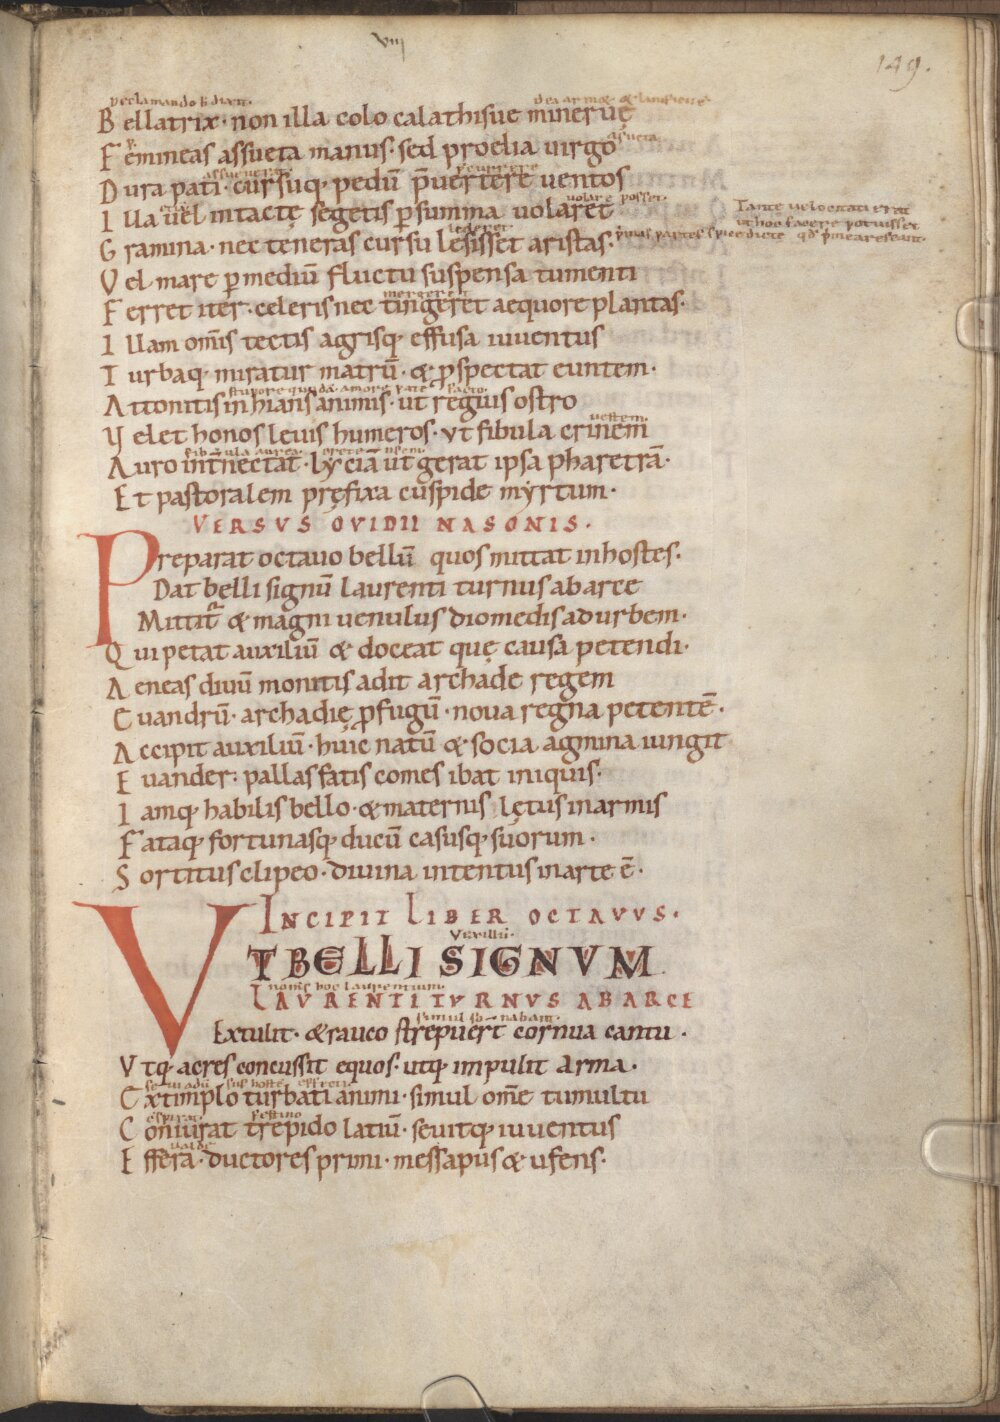 viii
149.
Bellatrix· non illa colo calathisue mineruę
Femineas assueta manus· sed proelia uirgo
Dura pati· cursuq; pedū p̄uertere uentos
Illa uel intactę segetis p summa uolaret
uolare posset
Tantę uelocitatis erat
ut hoc facere potuisset
Gramina· nec teneras cursu lesisset aristas·
Vel mare p mediū fluctu suspensa tumenti
Ferret iter· celeris nec tingueret aequore plantas·
Illam om̄is tectis agrisq; effusa iuuentus
Turbaq; miratur matrū· & pspectat euntem·
Attonitis inhians animis· ut regius ostro
Velet honos leuis humeros· ut fibula crinem
Auro int nectat· lyciā ut gerat ipsa pharetrā·
Et pastoralem pręfixa cuspide myrtum·
VERSVS OVIDII NASONIS·
Preparat octauo bellū quos mittat in hostes·
Dat belli signū laurenti turnus ab arce
Mittit & magni uenulus diomedis ad urbem·
Qui petat auxiliū & doceat quę causa petendi·
Aeneas diuū monitis adit archade regem
Euandrū· archadię pfugū· noua regna petentē·
Accipit auxiliū· huic natū & socia agmina iungit
Euander: pallas fatis comes ibat iniquis·
Iamq; habilis bello· & maternis lętus in armis
Fataq; fortunasq; ducū casusq; suorum·
Sortitus clipeo· diuina intentus in arte ē·
INCIPIT LIBER OCTAVVS·
Vexillū·
VT BELLI SIGNVM
LAVRENTI TVRNVS AB ARCE
Extulit· & rauco strepuert cornua cantu·
Vtq; acres concussit equos· utq; impulit arma·
Extimplo turbati animi· simul om̄e tumultu
festino
Coniurat trepido latiū· seuitq; iuuentus
Effera· ductores primi· messapus & ufens·